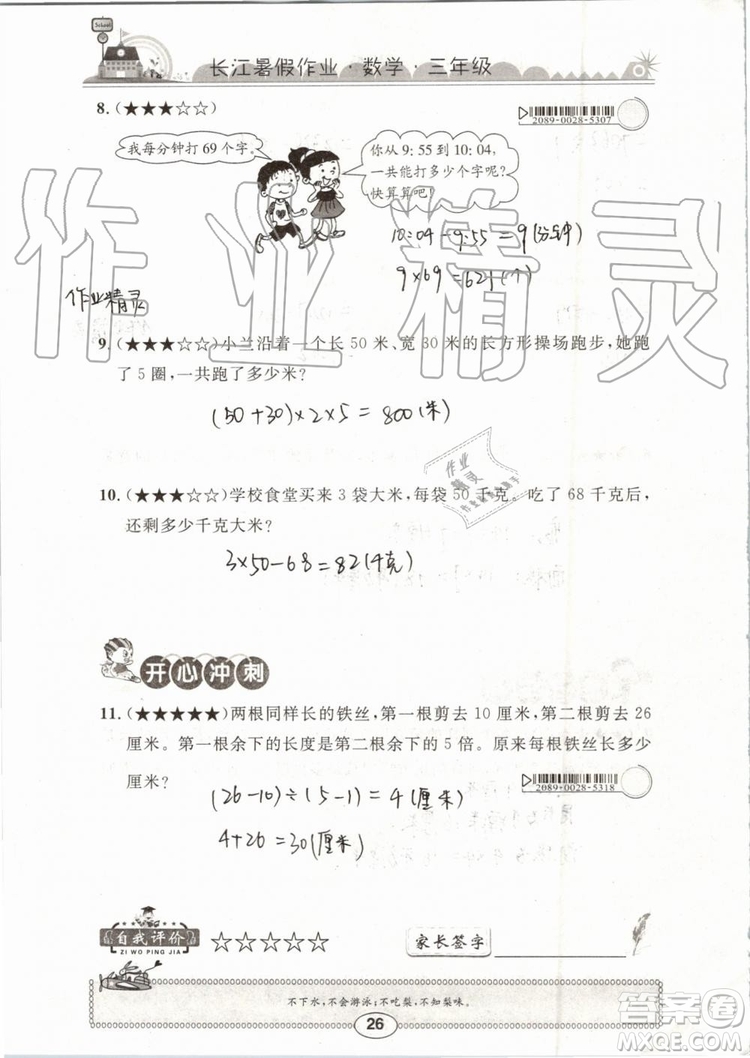 School
长江暑假作业·数学·三年级
8.(★★★☆☆)
2089-0028-5307
我每分钟打 69 个字。
你从 9: 55 到 10: 04,
一共能打多少个字呢?
快算算吧!
10:04-9:55=9(分钟)
9×69=621(个)
作业精灵
作业精灵
9.(★★★☆☆)小兰沿着一个长 50 米、宽 30 米的长方形操场跑步,她跑
了 5 圈,一共跑了多少米?
(50+30)×2×5=800(米)
作业
精灵
10.(★★★☆☆)学校食堂买来 3 袋大米,每袋 50 千克。吃了 68 千克后,
还剩多少千克大米?
3×50-68=82(千克)
开心冲刺
11.(★★★★★)两根同样长的铁丝,第一根剪去 10 厘米,第二根剪去 26
厘米。第一根余下的长度是第二根余下的 5 倍。原来每根铁丝长多少
厘米?
2089-0028-5318
(26-10)÷(5-1)=4(厘米)
4+26=30(厘米)
自我评价
ZI WO PING JIA
☆☆☆☆☆
家长签字
不下水,不会游泳;不吃梨,不知梨味。
26
答案圈
MXQE.COM